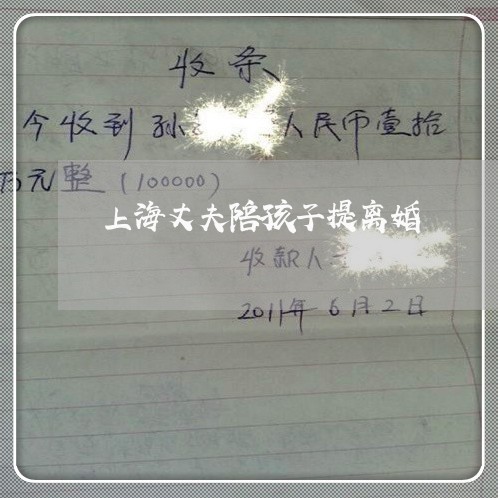 收条
今收到孙人民币壹拾
万元整（100000）
上海丈夫陪孩子提离婚
收款人
2011年6月2日